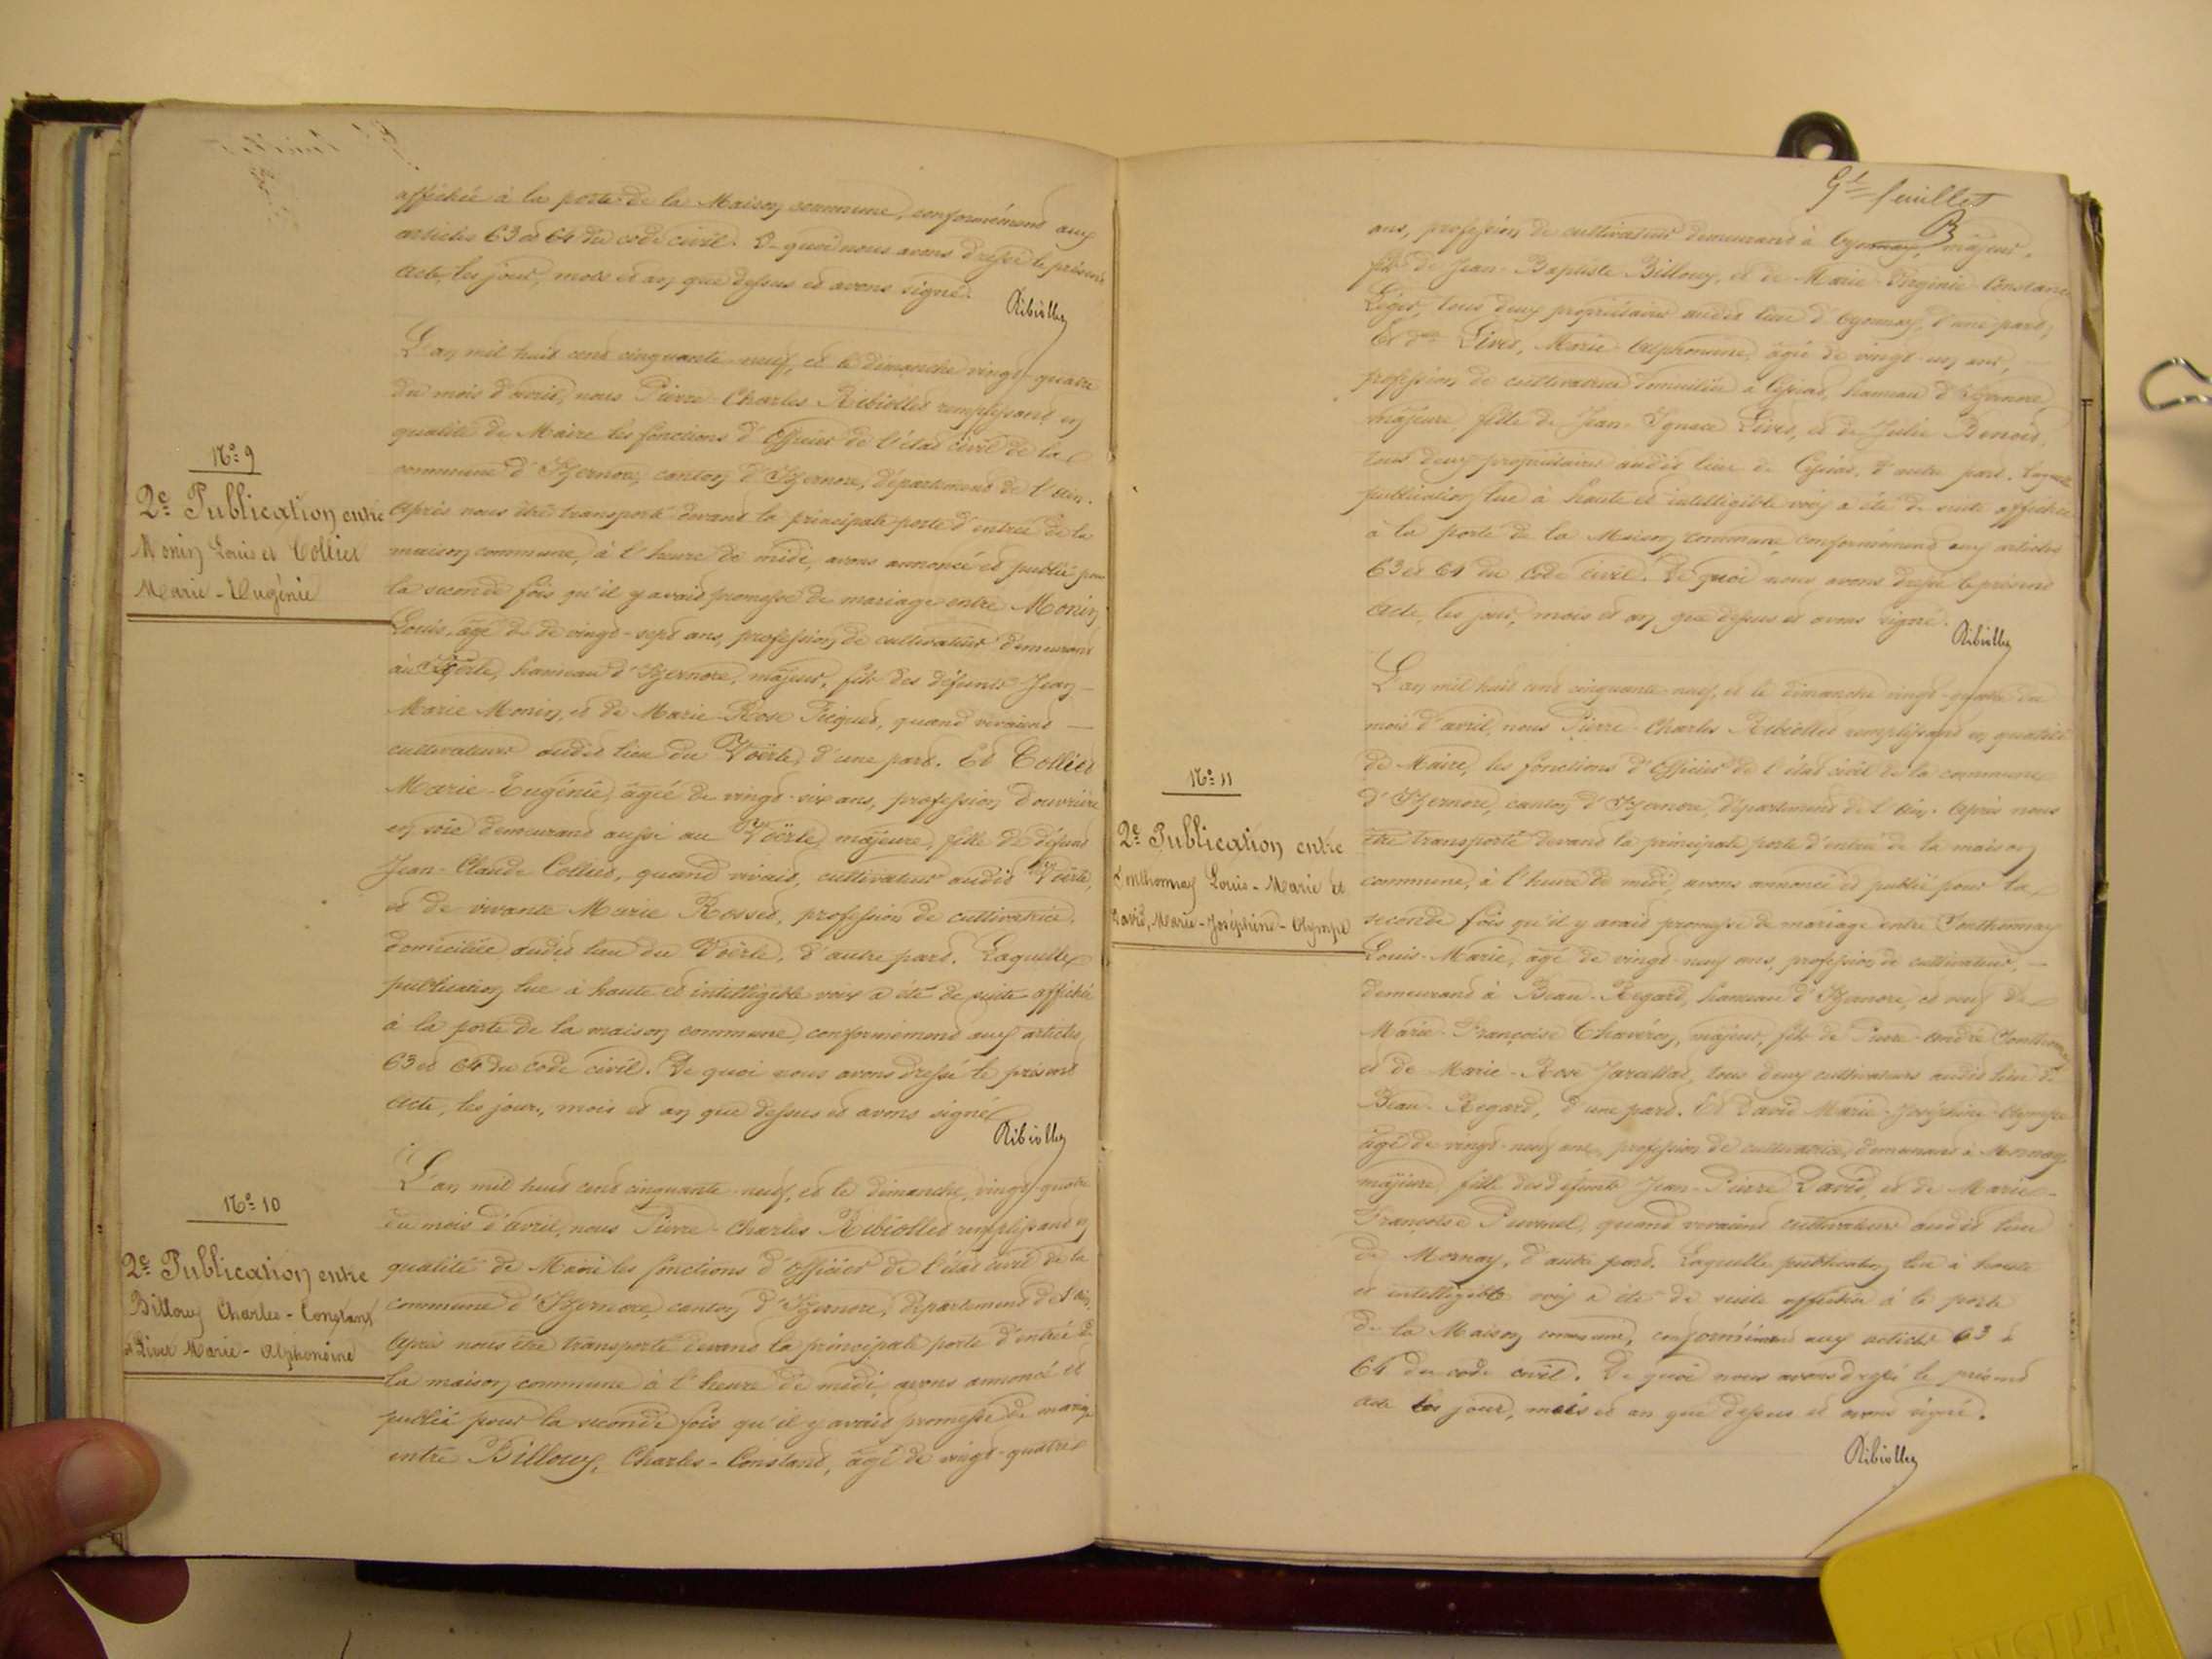 affichée à la porte de la Maison commune, conformément aux
articles 63 et 64 du code civil. De quoi nous avons dressé le présent
acte, les jour, mois et an que dessus et avons signé.
Ribiollet
N° 9
2e Publication entre
Monin Louis et Collier
Marie-Eugénie
L'an mil huit cent cinquante neuf, et le dimanche vingt-quatre
du mois d'avril, nous Pierre Charles Ribiollet remplissant en
qualité de Maire les fonctions d'Officier de l'état civil de la
commune d'Izernore, canton d'Izernore, département de l'Ain.
Après nous être transporté devant la principale porte d'entrée de la
maison commune, à l'heure de midi, avons annoncé et publié pour
la seconde fois qu'il y avait promesse de mariage entre Monin
Louis, âgé de de vingt-sept ans, profession de cultivateur demeurant
au hameau d'Izernore, majeur, fils des défunts Jean-
Marie Monin, et de Marie-Rose quand vivaient
cultivateurs audit lieu du Voërle, d'une part. Et Collier
Marie-Eugénie, âgée de vingt-six ans, profession d'ouvrière
en soie demeurant aussi au Voërle, majeure, fille de défunt
Jean-Claude Collier, quand vivait, cultivateur audit Voërle,
et de vivante Marie Rosset, profession de cultivatrice,
domiciliée audit lieu du Voërle, d'autre part. Laquelle
publication lue à haute et intelligible voix a été de suite affichée
à la porte de la maison commune, conformément aux articles
63 et 64 du code civil. De quoi nous avons dressé le présent
acte, les jour, mois et an que dessus et avons signé
Ribiollet
N° 10
2e Publication entre
Billoux Charles-Constant
et Livet Marie-Alphonsine
L'an mil huit cent cinquante-neuf, et le dimanche, vingt-quatre
du mois d'avril, nous Pierre-Charles Ribiollet remplissant en
qualité de Maire les fonctions d'Officier de l'état civil de la
commune d'Izernore, canton d'Izernore, département de l'Ain.
Après nous être transporté devant la principale porte d'entrée de
la maison commune à l'heure de midi, avons annoncé et
publié pour la seconde fois qu'il y avait promesse de mariage
entre Billoux, Charles-Constant, âgé de vingt-quatre
9e feuillet
ans, profession de cultivateur demeurant à Oyonnax, majeur,
fils de Jean-Baptiste Billoux, et de Marie-Virginie-Constance
Léger, tous deux propriétaires audit lieu d'Oyonnax, d'une part,
Et Livet, Marie Alphonsine, âgée de vingt-un ans,
profession de cultivatrice domiciliée à hameau d'Izernore
majeure, fille de Jean-Ignace Livet, et de Julie Benoit,
tous deux propriétaires audit lieu de d'autre part. Laquelle
publication lue à haute et intelligible voix a été de suite affichée
à la porte de la Maison commune conformément aux articles
63 et 64 du Code civil. De quoi nous avons dressé le présent
acte, les jour, mois et an que dessus et avons signé.
Ribiollet
N° 11
2e Publication entre
Tonthonnay Louis-Marie et
David, Marie-Joséphine-Olympe
L'an mil huit cent cinquante neuf, et le dimanche vingt-quatre du
mois d'avril, nous Pierre-Charles Ribiollet remplissant en qualité
de Maire, les fonctions d'Officier de l'état civil de la commune
d'Izernore, canton d'Izernore, département de l'Ain. Après nous
être transporté devant la principale porte d'entrée de la maison
commune, à l'heure de midi, avons annoncé et publié pour la
seconde fois qu'il y avait promesse de mariage entre Tonthonnay
Louis-Marie, âgé de vingt-neuf ans, profession de cultivateur,
demeurant à Beau-Regard, hameau d'Izernore, et veuf de
Marie-Françoise Chavéron, majeur, fils de Pierre-André Tonthonnay
et de Marie-Rose tous deux cultivateurs audit lieu de
Beau-Regard, d'une part. Et David Marie-Joséphine-Olympe
âgé de vingt-neuf ans, profession de cultivatrice, demeurant à Mornay,
majeure, fille des défunts Jean-Pierre David, et de Marie-
Françoise quand vivaient cultivateurs audit lieu
de Mornay, d'autre part. Laquelle publication lue à haute
et intelligible voix a été de suite affichée à la porte
de la Maison commune, conformément aux articles 63 et
64 du code civil. De quoi nous avons dressé le présent
acte les jour, mois et an que dessus et avons signé.
Ribiollet